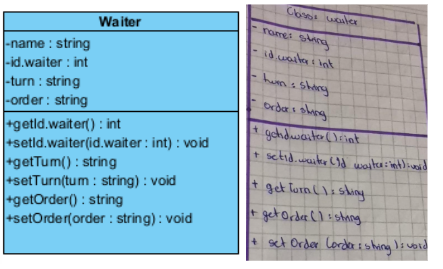 Waiter
-name : string
-id.waiter : int
-turn : string
-order : string
+getId.waiter() : int
+setId.waiter(id.waiter : int) : void
+getTurn() : string
+setTurn(turn : string) : void
+getOrder() : string
+setOrder(order : string) : void
Class: waiter
- name: string
- id.waiter: int
- turn: string
- order: string
+ getidwaiter(): int
+ setid.waiter(id waiter: int): void
+ getTurn(): string
+ getOrder(): string
+ setOrder (order: string): void